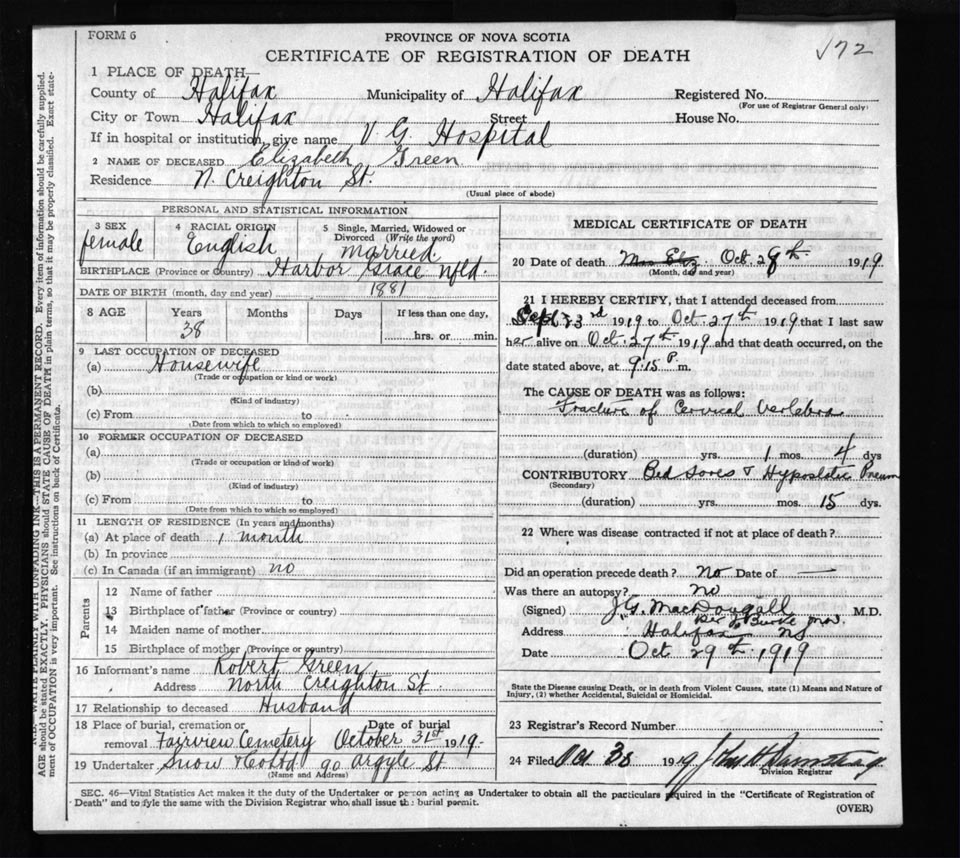 FORM 6
PROVINCE OF NOVA SCOTIA
CERTIFICATE OF REGISTRATION OF DEATH
172
1 PLACE OF DEATH—
County of Halifax Municipality of Halifax Registered No.
(For use of Registrar General only)
City or Town Halifax Street House No.
If in hospital or institution, give name V. G. Hospital
2 NAME OF DECEASED Elizabeth Green
Residence N. Creighton St.
(Usual place of abode)
PERSONAL AND STATISTICAL INFORMATION
3 SEX female
4 RACIAL ORIGIN English
5 Single, Married, Widowed or Divorced (Write the word) married.
BIRTHPLACE (Province or Country) Harbor Grace Nfld.
DATE OF BIRTH (month, day and year) 1881
8 AGE Years Months Days If less than one day,
38 hrs. or min.
9 LAST OCCUPATION OF DECEASED
(a) Housewife
(Trade or occupation or kind of work)
(b)
(Kind of industry)
(c) From to
(Date from which to which so employed)
10 FORMER OCCUPATION OF DECEASED
(a)
(Trade or occupation or kind of work)
(b)
(Kind of industry)
(c) From to
(Date from which to which so employed)
11 LENGTH OF RESIDENCE (In years and months)
(a) At place of death 1 month
(b) In province
(c) In Canada (if an immigrant) no
Parents
12 Name of father
13 Birthplace of father (Province or country)
14 Maiden name of mother
15 Birthplace of mother (Province or country)
16 Informant's name Robert Green
Address North Creighton St.
17 Relationship to deceased Husband
18 Place of burial, cremation or Date of burial
removal Fairview Cemetery October 31st 1919.
19 Undertaker Snow & Co Ltd 90 Argyle St
(Name and Address)
MEDICAL CERTIFICATE OF DEATH
20 Date of death Oct. 28th. 1919
(Month, day and year)
21 I HEREBY CERTIFY, that I attended deceased from
Sept 23rd 1919 to Oct. 27th 1919 that I last saw
her alive on Oct. 27th 1919 and that death occurred, on the
date stated above, at 9.15 P. m.
The CAUSE OF DEATH was as follows:
Fracture of Cervical Vertebra
(duration) yrs. 1 mos. 4 dys
CONTRIBUTORY Bed Sores & Hypostatic Pneum
(Secondary)
(duration) yrs. mos. 15 dys.
22 Where was disease contracted if not at place of death?
Did an operation precede death? No Date of —
Was there an autopsy? no
(Signed) J.G. MacDougall M.D.
Per J Burke
Address Halifax NS
Date Oct 29th 1919
State the Disease causing Death, or in death from Violent Causes, state (1) Means and Nature of
Injury, (2) whether Accidental, Suicidal or Homicidal.
23 Registrar's Record Number
24 Filed Oct 30 1919
Division Registrar
SEC. 46—Vital Statistics Act makes it the duty of the Undertaker or person acting as Undertaker to obtain all the particulars required in the "Certificate of Registration of
Death" and to fyle the same with the Division Registrar who shall issue the burial permit.
(OVER)
WRITE PLAINLY WITH UNFADING INK—THIS IS A PERMANENT RECORD. Every item of information should be carefully supplied.
AGE should be stated EXACTLY. PHYSICIANS should STATE CAUSE OF DEATH in plain terms, so that it may be properly classified. Exact state-
ment of OCCUPATION is very important. See instructions on back of Certificate.